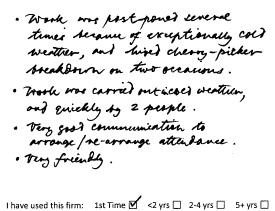 • Work was postponed several
times because of exceptionally cold
weather, and hired cherry-picker
breakdown on two occasions.
• Work was carried out in cold weather,
and quickly by 2 people.
• Very good communication to
arrange/re-arrange attendance.
• Very friendly.
I have used this firm: 1st Time ☑ <2 yrs ☐ 2-4 yrs ☐ 5+ yrs ☐